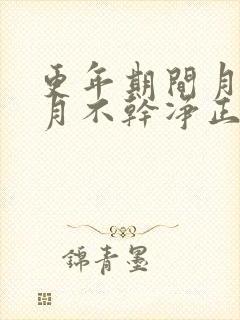 更年期間月
月不幹淨正
錦青墨